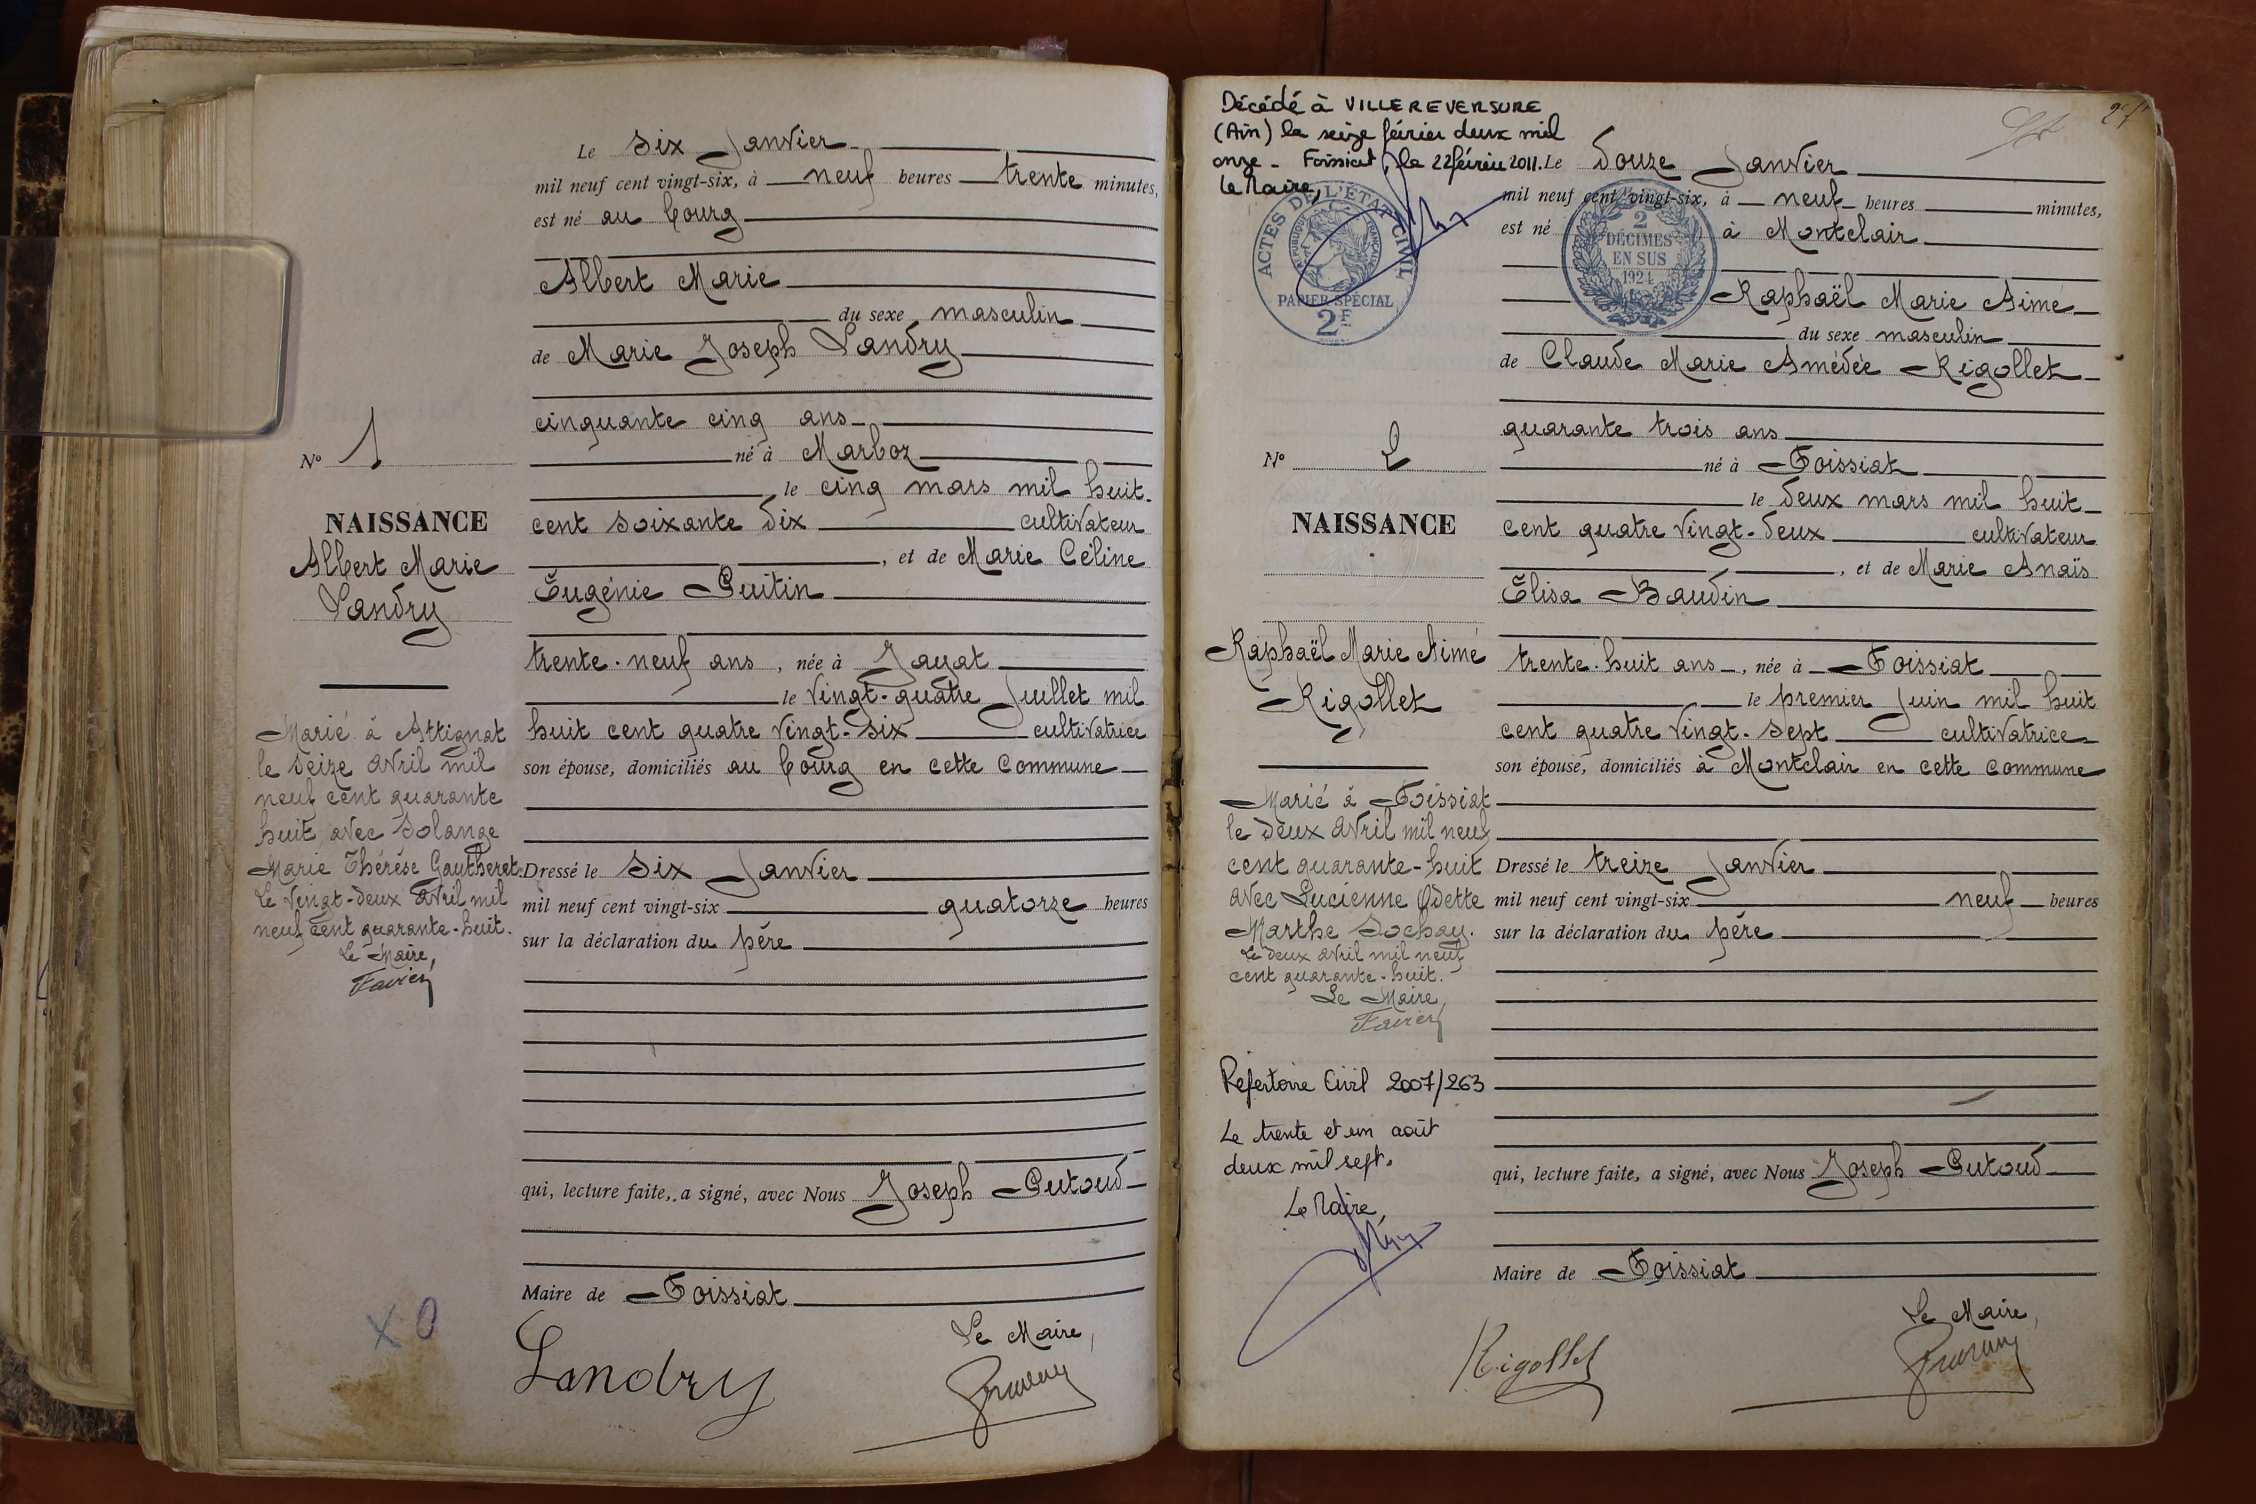 Le six Janvier
mil neuf cent vingt-six, à neuf heures trente minutes,
est né au bourg
Albert Marie
du sexe masculin
de Marie Joseph Landry
cinquante cinq ans
né à Marboz
le cinq mars mil huit-
cent soixante dix cultivateur
, et de Marie Céline
Eugénie Guitin
trente-neuf ans , née à Jayat
le vingt-quatre Juillet mil
huit cent quatre vingt-six cultivatrice
son épouse, domiciliés au bourg en cette Commune
Dressé le six Janvier
mil neuf cent vingt-six quatorze heures
sur la déclaration du père
qui, lecture faite, a signé, avec Nous Joseph Putoud
Maire de Foissiat
Le Maire,
Landry
N° 1
NAISSANCE
Albert Marie
Landry
Marié à Attignat
le seize avril mil
neuf cent quarante
huit avec Solange
Marie Thérèse Gautheret.
Le vingt-deux avril mil
neuf cent quarante-huit.
Le Maire,
Favier
X 0
27
Décédé à VILLEREVERSURE
(Ain) le seize février deux mil
onze - Foissiat, le 22 février 2011.
Le Maire,
ACTES DE L'ÉTAT CIVIL
RÉPUBLIQUE FRANÇAISE
PAPIER SPÉCIAL
2F
2
DÉCIMES
EN SUS
1924
Le douze Janvier
mil neuf cent vingt-six, à neuf heures minutes,
est né à Montclair
Raphaël Marie Aimé
du sexe masculin
de Claude Marie Amédée Rigollet
quarante trois ans
né à Foissiat
le deux mars mil huit
cent quatre vingt-deux cultivateur
, et de Marie Anaïs
Elisa Baudin
trente-huit ans , née à Foissiat
le premier Juin mil huit
cent quatre vingt-sept cultivatrice
son épouse, domiciliés à Montclair en cette commune
Dressé le treize Janvier
mil neuf cent vingt-six neuf heures
sur la déclaration du père
qui, lecture faite, a signé, avec Nous Joseph Putoud
Maire de Foissiat
Le Maire,
Rigollet
N° 2
NAISSANCE
Raphaël Marie Aimé
Rigollet
Marié à Foissiat
le deux avril mil neuf
cent quarante-huit
avec Lucienne Odette
Marthe Sochay.
Le deux avril mil neuf
cent quarante-huit.
Le Maire,
Favier
Répertoire Civil 2007/263
Le trente et un août
deux mil sept.
Le Maire,